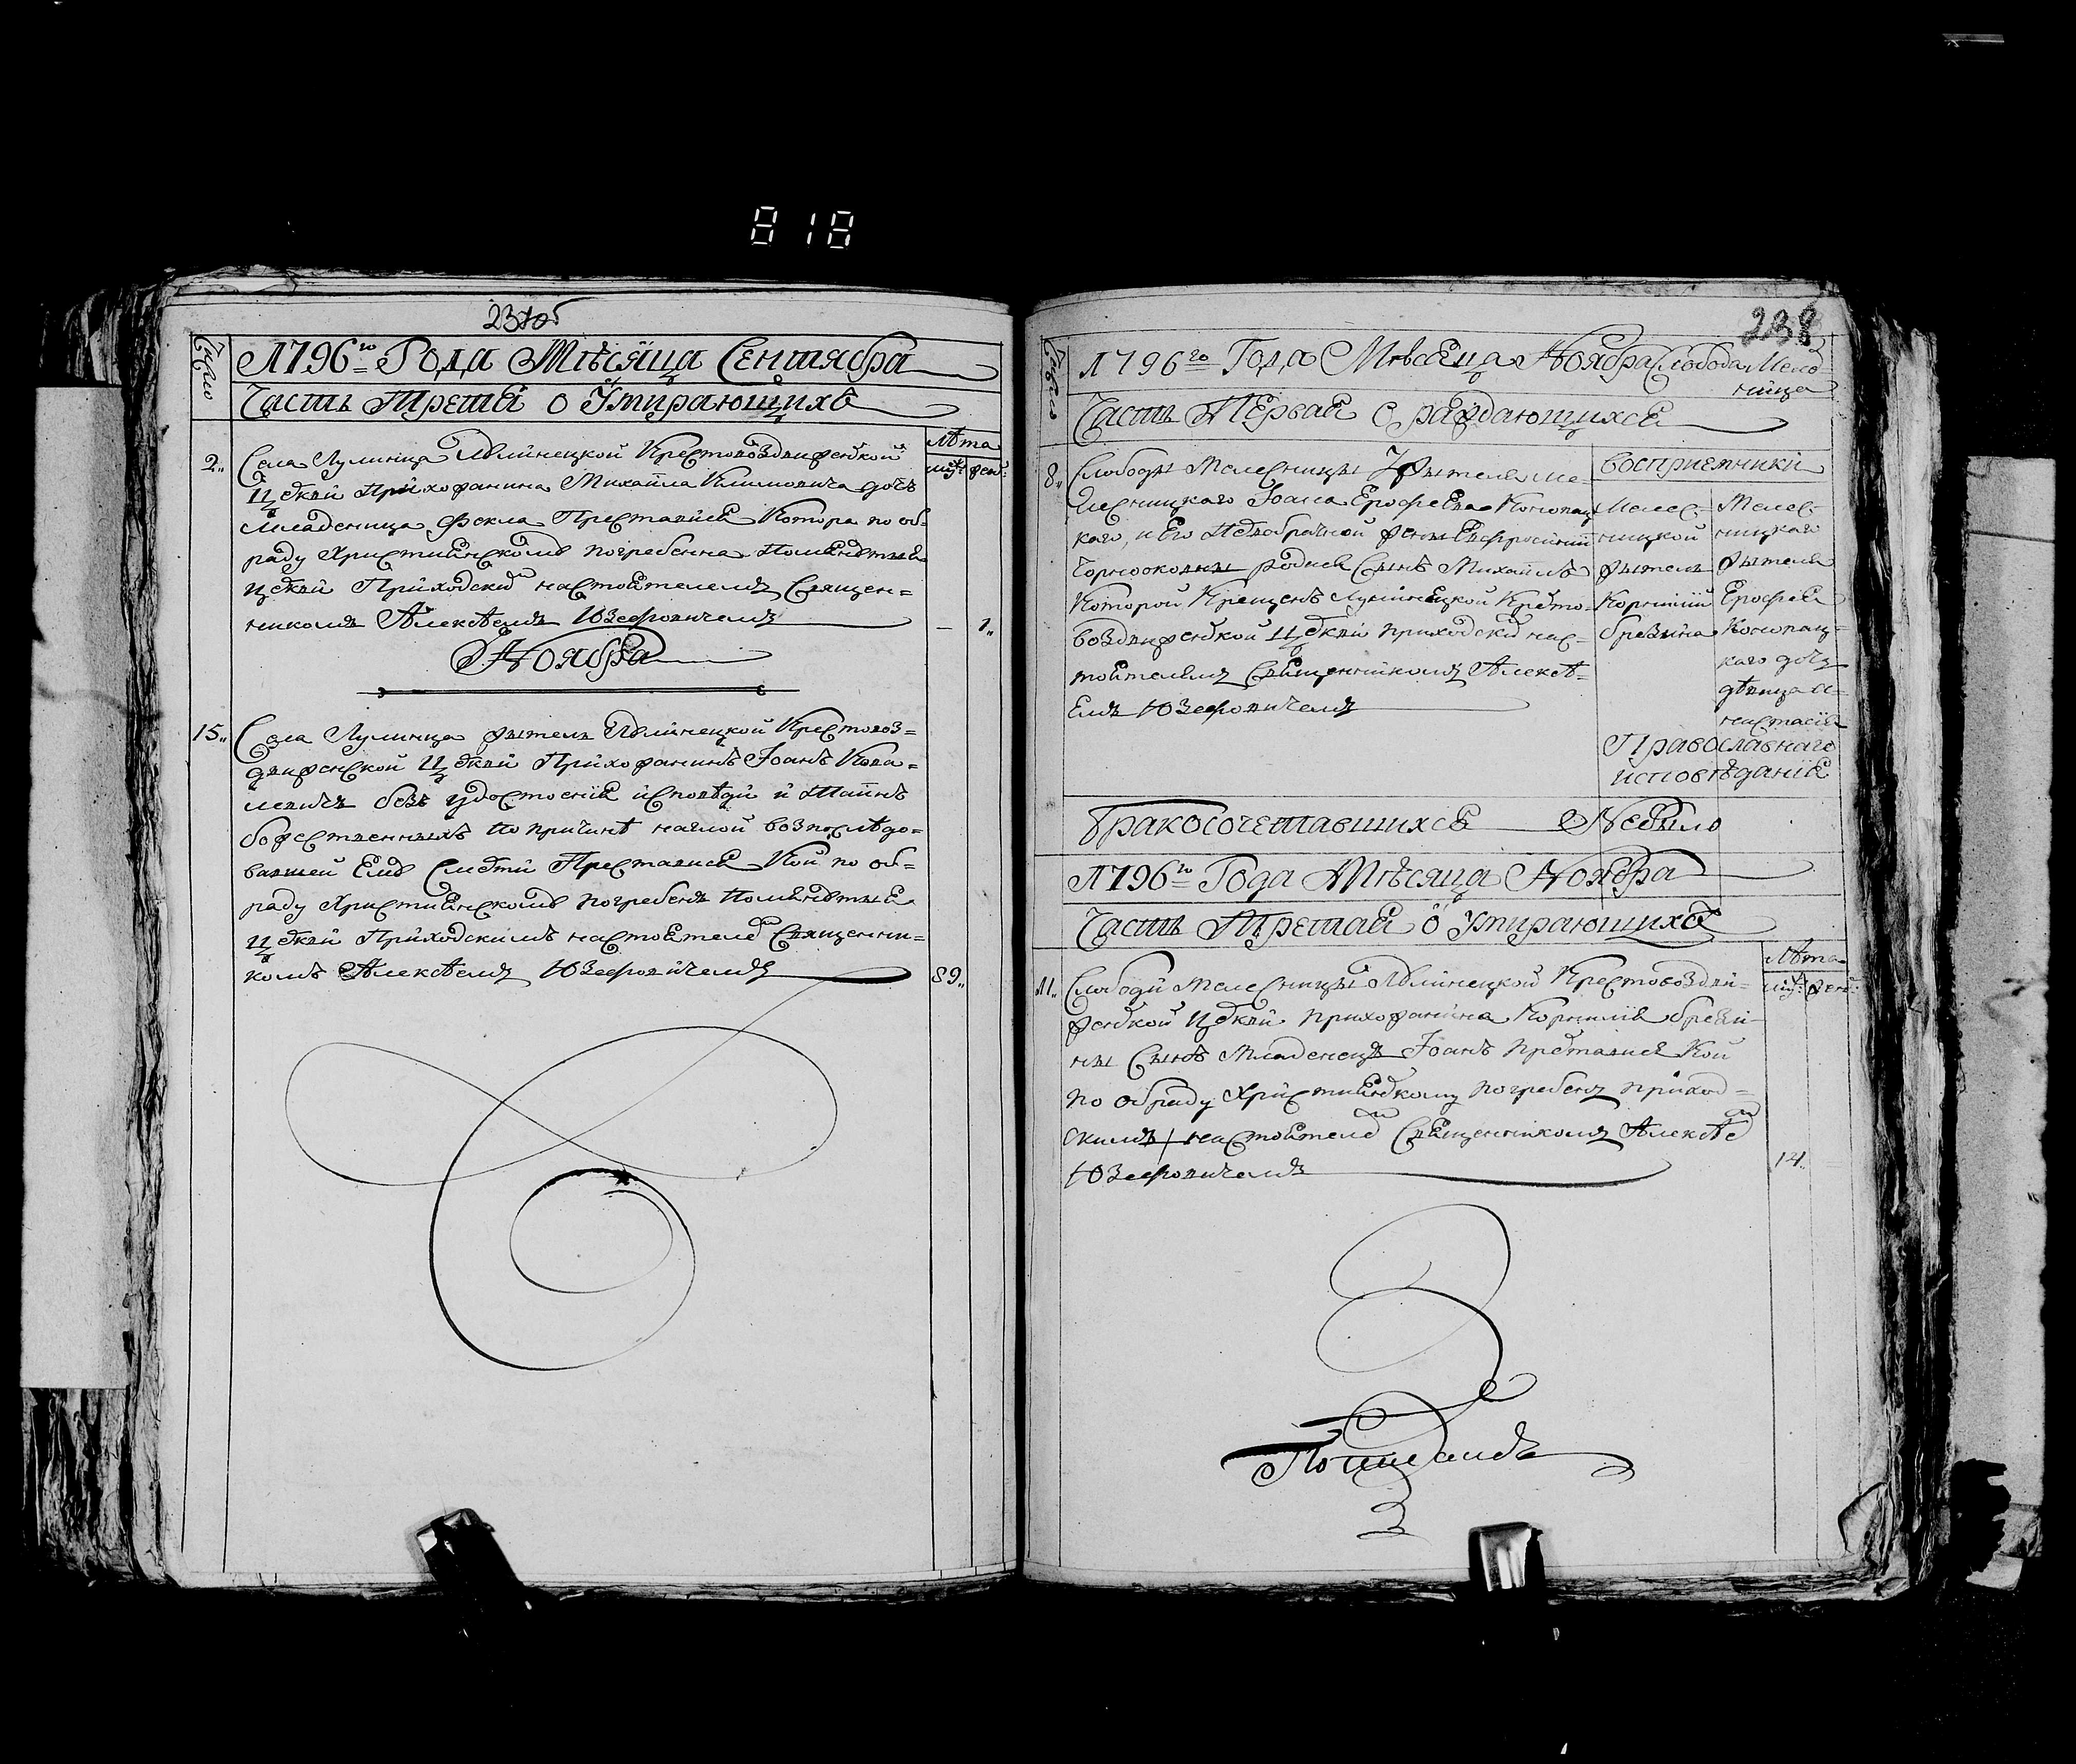 818
237об
Число
1796го Года Мѣсяца Сентября
Часть Третяя о Умирающихъ
Лѣта
муж: жен:
2„ Села Лулинца Лулинецкой Крестовоздвиженской
Цркви Прихожанина Михаила Климовича дочь
Младеница Фекла Преставися Котора по об=
ряду Християнскому погребенна Помянутыя
Цркви Приходским настоятелемъ Священ=
никомъ Алексѣемъ Юзефовичемъ — 1„
Ноября
15„ Села Лулинца житель Лулинецкой Крестовоз=
движенской Цркви Прихожанинъ Іоанъ Кова=
левичъ безъ удостоенія исповѣди и Таинъ
божественныхъ по причинѣ наглой возпослѣдо=
вавшей Ему Смерти Преставися Кой по об=
ряду Християнскому погребенъ Помянутыя
Цркви Приходскимъ настоятелем Священни=
комъ Алексѣемъ Юзефовичемъ 89„
238
Число
1796го Года Мѣсяца Ноября Слобода Меле=
ница
Часть Первая о раждающихся
8„ Слободы Мелесницы Жителя Ме=
лесницкаго Іоана Ерофеева Конопац
каго, и Его Недобрачной жены Евфросиніи
родися Сынъ Михаилъ
Которой Крещенъ Лулинецкой Кресто=
воздвиженской Цркви приходским нас=
тоятелемъ Священникомъ Алексѣ=
Емъ Юзефовичемъ
восприемники
Мелес=
ницкой
житель
Корнилій
брезина
Мелес=
ницкаго
жителя
Ерофея
Конопац=
каго дочь
дѣвица А=
настасія
Православнаго
исповѣданія
Бракосочетавшихся Небыло
1796го Года Мѣсяца Ноября
Часть Третяя о Умирающихъ
Лѣта
муж: жен:
11„ Слободи Мелесницы Лулинецкой Крестовоздви=
женской Цркви прихожанина Корнилія брези=
ны Сынъ Младенецъ Іоанъ преставися Кой
по обряду Християнскому погребенъ приход=
скимъ настоятелем Священникомъ Алексѣем
Юзефовичемъ 14„